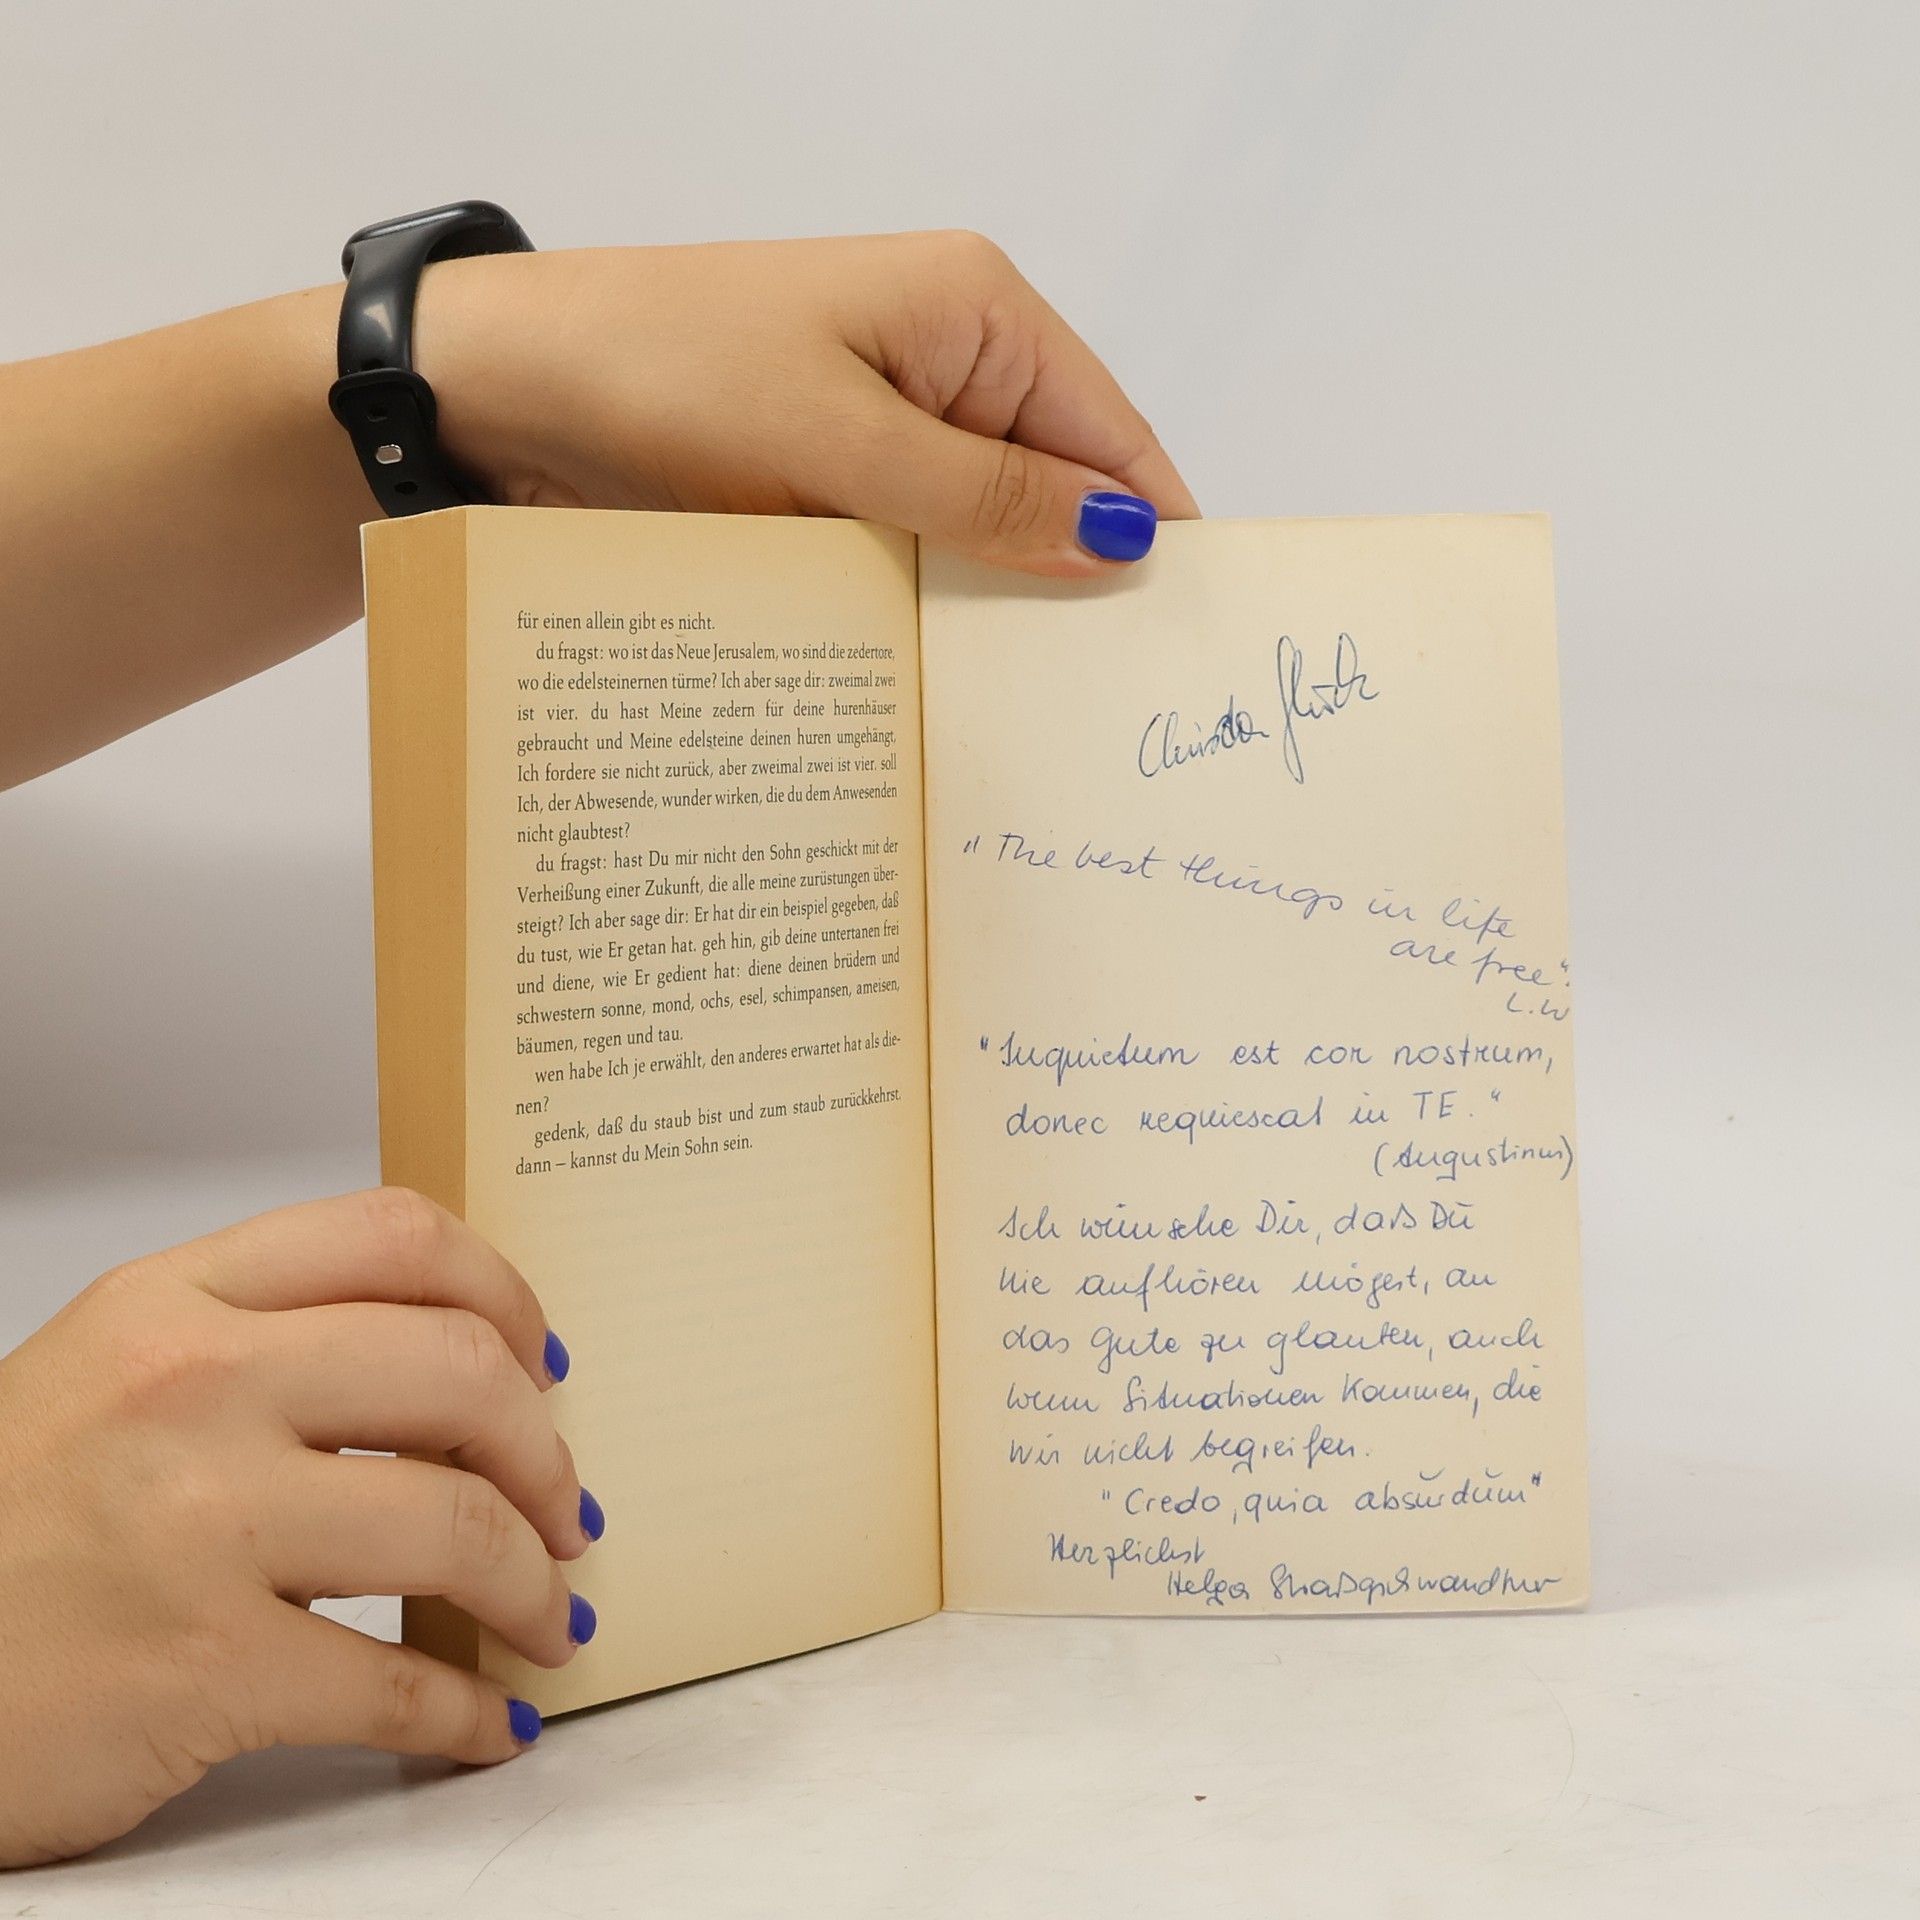 für einen allein gibt es nicht.
du fragst: wo ist das Neue Jerusalem, wo sind die zedertore,
wo die edelsteinernen türme? Ich aber sage dir: zweimal zwei
ist vier. du hast Meine zedern für deine hurenhäuser
gebraucht und Meine edelsteine deinen huren umgehängt,
Ich fordere sie nicht zurück, aber zweimal zwei ist vier. soll
Ich, der Abwesende, wunder wirken, die du dem Anwesenden
nicht glaubtest?
du fragst: hast Du mir nicht den Sohn geschickt mit der
Verheißung einer Zukunft, die alle meine zurüstungen über-
steigt? Ich aber sage dir: Er hat dir ein beispiel gegeben, daß
du tust, wie Er getan hat. geh hin, gib deine untertanen frei
und diene, wie Er gedient hat: diene deinen brüdern und
schwestern sonne, mond, ochs, esel, schimpansen, ameisen,
bäumen, regen und tau.
wen habe Ich je erwählt, den anderes erwartet hat als die-
nen?
gedenk, daß du staub bist und zum staub zurückkehrst.
dann – kannst du Mein Sohn sein.
Christa
"The best things in life
are free".
L.W
"Inquietum est cor nostrum,
donec requiescat in TE."
(Augustinus)
Ich wünsche Dir, daß Du
nie aufhören mögest, an
das Gute zu glauben, auch
wenn Situationen kommen, die
wir nicht begreifen.
"Credo, quia absurdum"
Herzlichst
Helga